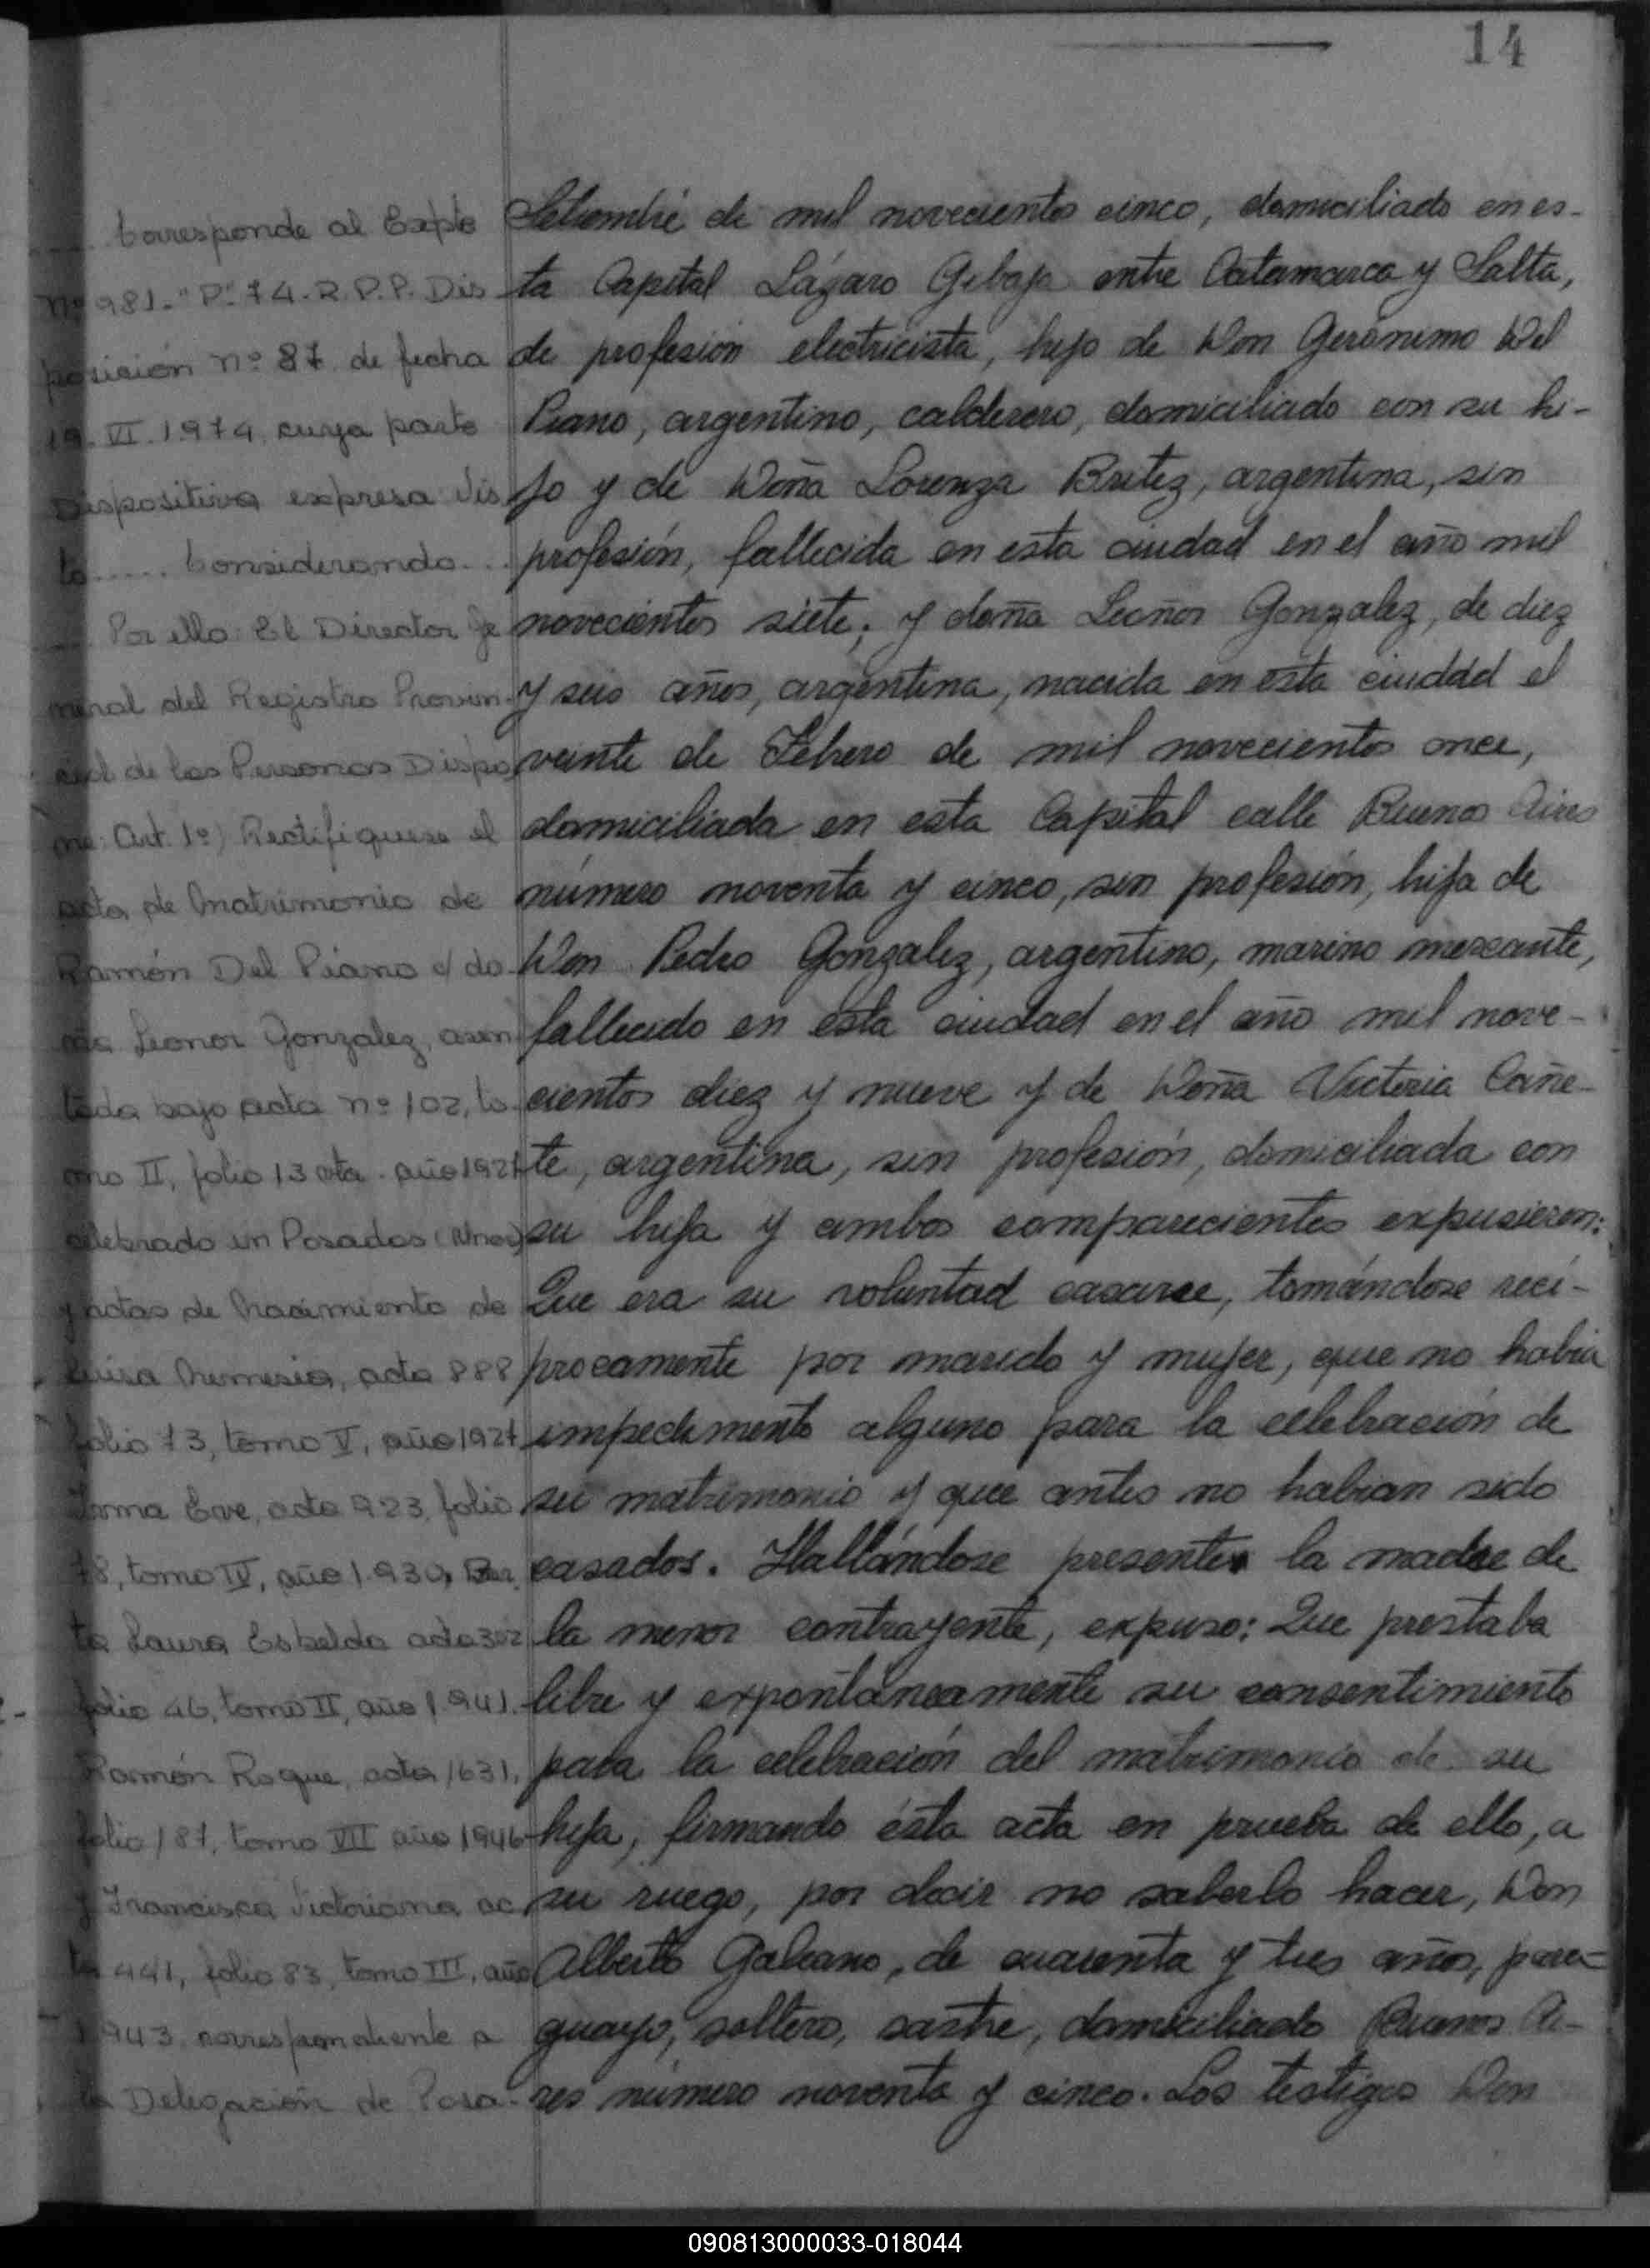 14
Corresponde al Expte
Nº 981-"P" 74-R.P.P. Dis
posición nº 87 de fecha
19.VI.1974, cuya parte
Dispositiva expresa: Vis
to..... Considerando...
.... Por ello: El Director Ge
neral del Registro Provin-
cial de las Personas Dispo
ne: Art. 1º) Rectifiquese el
acta de Matrimonio de
Ramón Del Piano c/ do-
ña Leonor Gonzalez, asen
tada bajo acta nº 102, to-
mo II, folio 13 vta. año 1927
celebrado en Posadas (Mnes)
y actas de Nacimiento de
Luisa Nemesia, acta 888
folio 73, tomo V, año 1927
Irma Eve, acta 923, folio
78, tomo IV, año 1.930, Ber
ta Laura Esbelda acta 302
folio 46, tomo II, año 1.941.
Ramón Roque, acta 1631,
folio 187, tomo VII año 1946
y Francisca Victoriana ac
ta 441, folio 83, tomo III, año
1.943, correspondiente a
la Delegación de Posa-
Setiembre de mil novecientos cinco, domiciliado en es-
ta Capital Lázaro Gibaja entre Catamarca y Salta,
de profesión electricista, hijo de Don Gerónimo Del
Piano, argentino, calderero, domiciliado con su hi-
jo y de Doña Lorenza Britez, argentina, sin
profesión, fallecida en esta ciudad en el año mil
novecientos siete; y doña Leoñor Gonzalez, de diez
y seis años, argentina, nacida en esta ciudad el
veinte de Febrero de mil novecientos once,
domiciliada en esta Capital calle Buenos Aires
número noventa y cinco, sin profesión, hija de
Don Pedro Gonzalez, argentino, marino mercante,
fallecido en esta ciudad en el año mil nove-
cientos diez y nueve y de Doña Victoria Cañe-
te, argentina, sin profesión, domiciliada con
su hija y ambos comparecientes expusieron:
Que era su voluntad casarse, tomándose recí-
procamente por marido y mujer, que no había
impedimento alguno para la celebración de
su matrimonio y que antes no habian sido
casados. Hallándose presente la madre de
la menor contrayente, expuso: Que prestaba
libre y expontáneamente su consentimiento
para la celebración del matrimonio de su
hija, firmando ésta acta en prueba de ello, a
su ruego, por decir no saberlo hacer, Don
Alberto Galeano, de cuarenta y tres años, para-
guayo, soltero, sastre, domiciliado Buenos Ai-
res número noventa y cinco. Los testigos Don
090813000033-018044